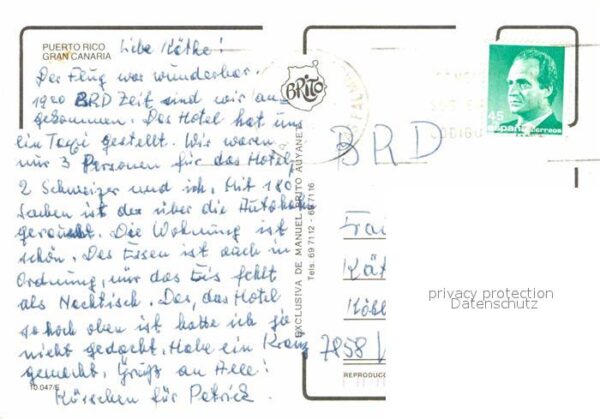 PUERTO RICO
GRAN CANARIA
Liebe Käthe!
Der Flug war wunderbar.
1920 BRD Zeit sind wir an-
gekommen. Das Hotel hat uns
ein Taxi gestellt. Wir waren
nur 3 Personen für das Hotel,
2 Schweizer und ich. Mit 180
Sachen ist der über die Autobahn
gerauscht. Die Wohnung ist
schön. Das Essen ist auch in
Ordnung, nur das Eis fehlt
als Nachtisch. Das, das Hotel
so hoch oben ist hatte ich ja
nicht gedacht. Habe ein Kreuz
gemacht. Gruß an Alle!
Küsschen für Patrick.
10.047/E
BRITO
EXCLUSIVA DE MANUEL BRITO AUYANET
Tels. 69 7112 - 69 7116
45
España correos
BRD
Kät
7858
REPRODUCC
privacy protection
Datenschutz